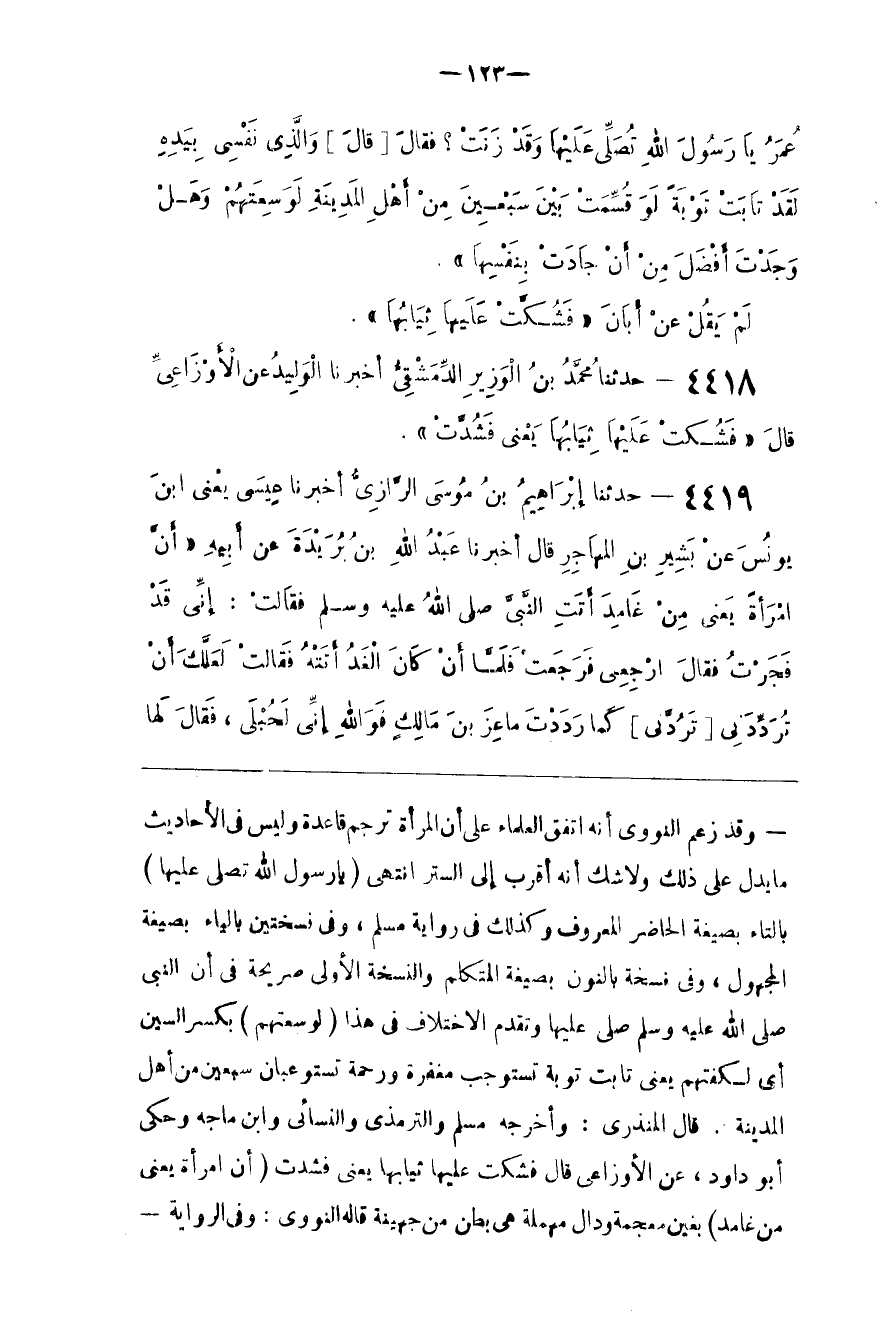 —١٢٣—
عُمَرُ يَا رَسُولَ اللهِ تُصَلِّى عَلَيْهَا وَقَدْ زَنَتْ ؟ فقالَ [ قالَ ] وَالَّذِى نَفْسِى بِيَدِهِ
لَقَدْ تابَتْ تَوْبَةً لَوْ قُسِّمَتْ بَيْنَ سَبْعِينَ مِنْ أَهْلِ المَدِينَةِ لَوَسِعَتْهُمْ وَهَلْ
وَجَدْتَ أَفْضَلَ مِنْ أَنْ جَادَتْ بِنَفْسِهَا » .
لَمْ يَقُلْ عنْ أَبَانَ « فَشُكَّتْ عَلَيها ثِيَابُهَا » .
٤٤١٨ — حدثنا مُحمَّدُ بنُ الْوَزِيرِ الدِّمَشْقِىُّ أخبرنا الْوَلِيدُ عن الْأَوْزَاعِىِّ
قالَ « فَشُكتْ عَلَيْهَا ثِيَابُهَا يَعْنى فَشُدَّتْ » .
٤٤١٩ — حدثنا إِبْرَاهِيمُ بنُ مُوسَى الرَّازِىُّ أخبرنا عِيسَى يعْنى ابنَ
يونُسَ عنْ بَشِيرِ بنِ المهَاجِرِ قال أخبرنا عَبْدُ اللهِ بنُ بُرَيْدَةَ عن أَبِيهِ « أَنَّ
امْرَأَةً يَعنى مِنْ غَامِدَ أَتَتِ النَّبىَّ صلى اللهُ عليه وسلم فقالتْ : إِنِّى قَدْ
فَجَرْتُ فقالَ ارْجِعِى فَرَجَعتْ فَلَمَّا أَنْ كَانَ الْغَدُ أَتَتْهُ فَقالتْ لَعَلَّكَ أَنْ
تُرَدِّدَنِى [ تَرُدَّنى ] كَما رَدَدْتَ ماعِزَ بنَ مَالِكٍ فَوَاللهِ إِنِّى لَحُبْلَى ، فَقالَ لَها
— وقد زعم النووى أنه اتفق العلماء على أن المرأة ترجم قاعدة وليس فى الأحاديث
مايدل على ذلك ولاشك أنه أقرب إلى الستر انتهى ( يارسول الله تصلى عليها )
بالتاء بصيغة الحاضر المعروف وكذلك فى رواية مسلم ، وفى نسختين بالياء بصيغة
المجهول ، وفى نسخة بالنون بصيغة المتكلم والنسخة الأولى صريحة فى أن النبى
صلى الله عليه وسلم صلى عليها وتقدم الاختلاف فى هذا ( لوسعتهم ) بكسر السين
أى لكفتهم يعنى تابت توبة تستوجب مغفرة ورحمة تستوعبان سبعين من أهل
المدينة . قال المنذرى : وأخرجه مسلم والترمذى والنسائى وابن ماجه وحكى
أبو داود ، عن الأوزاعى قال فشكت عليها ثيابها يعنى فشدت ( أن امرأة يعنى
من غامد ) بغين معجمة ودال مهملة هى بطن من جهينة قاله النووى : وفى الرواية —